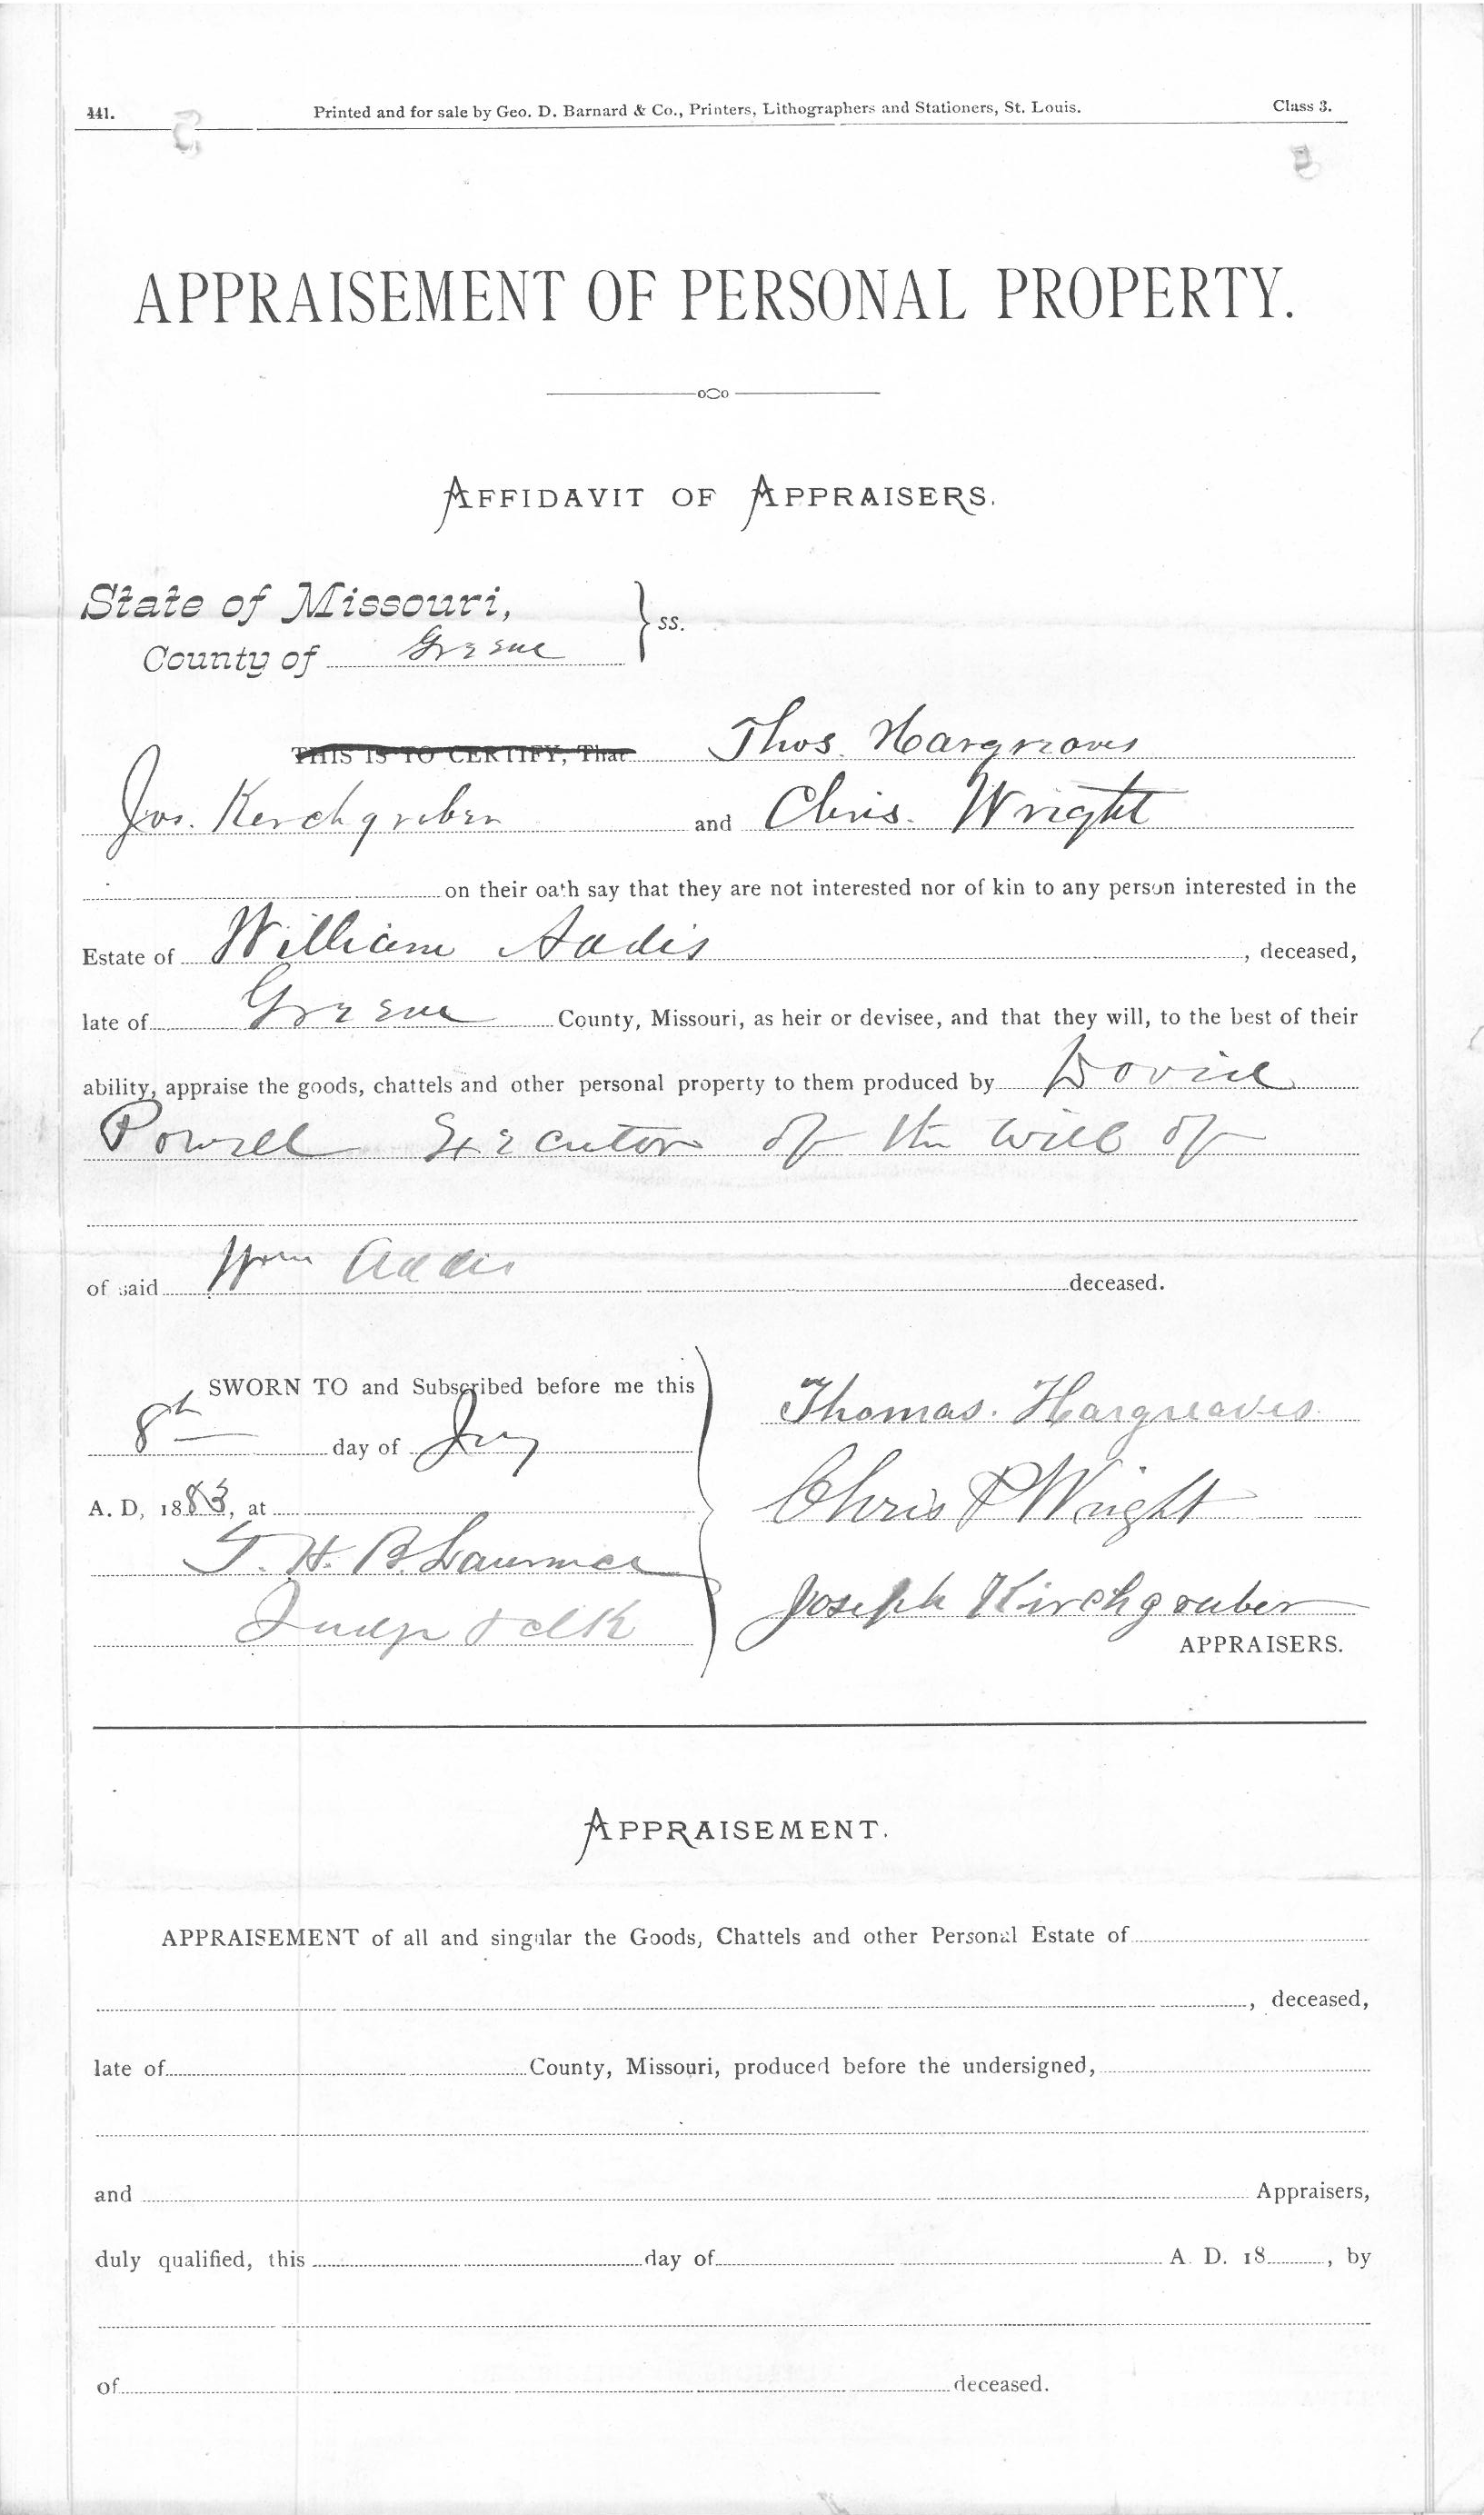 441. Printed and for sale by Geo. D. Barnard & Co., Printers, Lithographers and Stationers, St. Louis. Class 3.
APPRAISEMENT OF PERSONAL PROPERTY.
AFFIDAVIT OF APPRAISERS.
State of Missouri,
County of Greene } ss.
THIS IS TO CERTIFY, That Thos. Hargreaves
Jos. Kerchgruber and Chris. Wright
on their oath say that they are not interested nor of kin to any person interested in the
Estate of William Addis, deceased,
late of Greene County, Missouri, as heir or devisee, and that they will, to the best of their
ability, appraise the goods, chattels and other personal property to them produced by
Powell Executor of the will of
of said Wm Addis deceased.
SWORN TO and Subscribed before me this
8th day of
A. D, 1883, at
T. H. B. Lawrence
Judge
Thomas. Hargreaves
Chris P Wright
Joseph Kirchgraber
APPRAISERS.
APPRAISEMENT.
APPRAISEMENT of all and singular the Goods, Chattels and other Personal Estate of
, deceased,
late of County, Missouri, produced before the undersigned,
and Appraisers,
duly qualified, this day of A. D. 18 , by
of deceased.